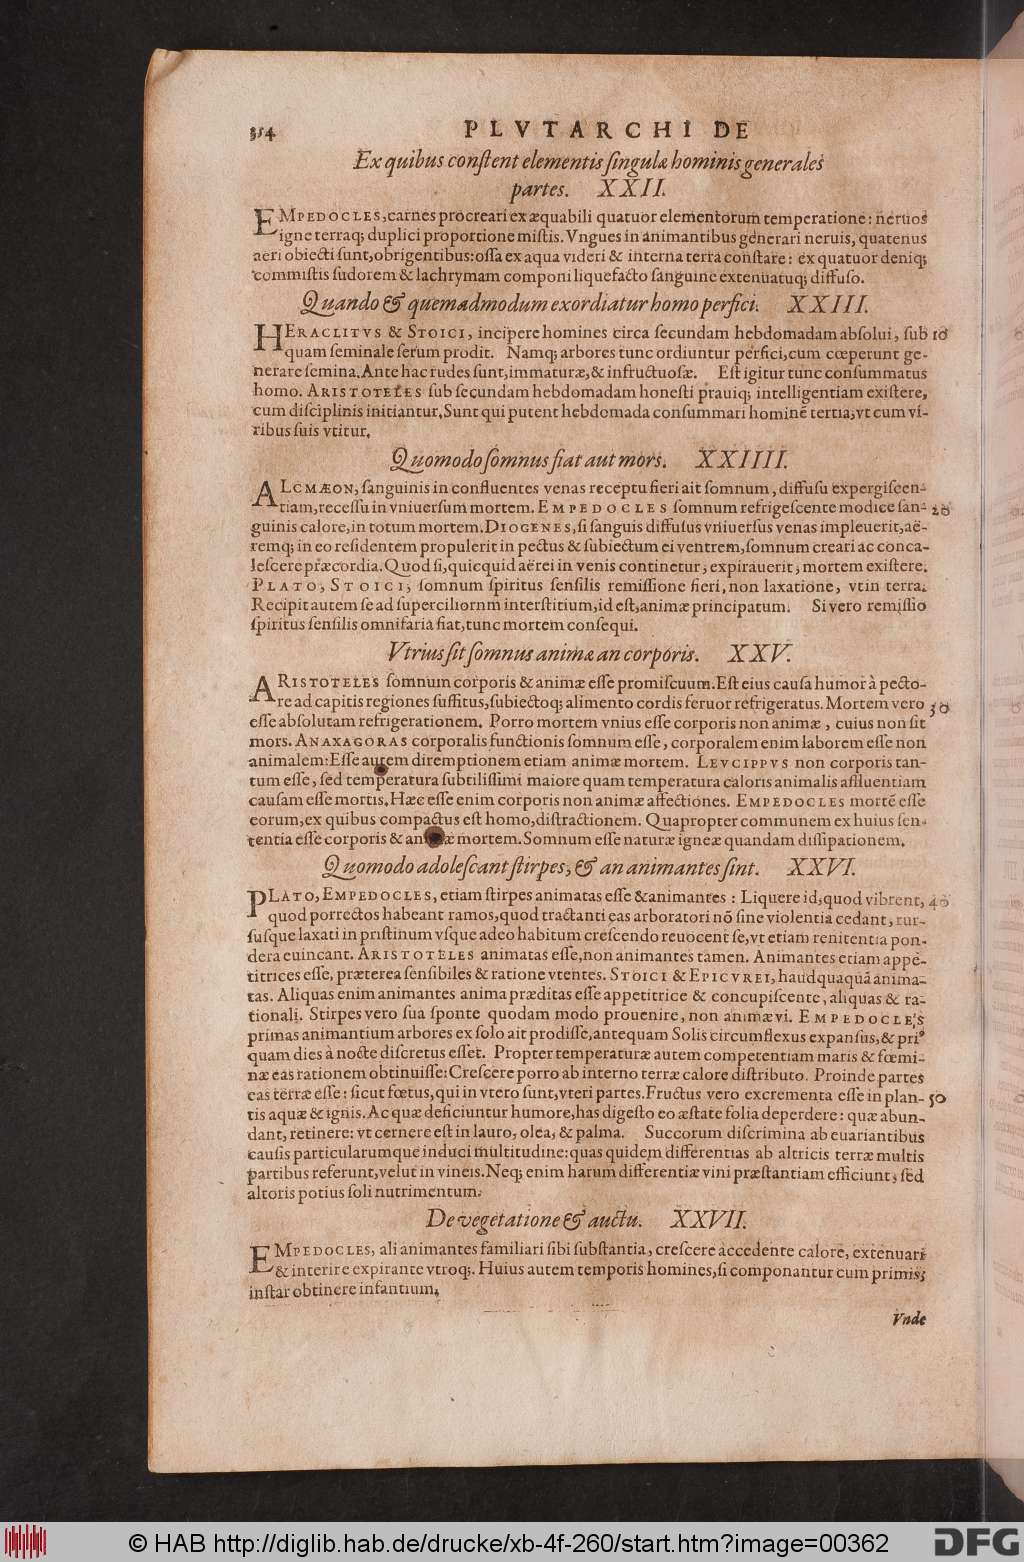 354 PLVTARCHI DE
Ex quibus conſtent elementis ſingulæ hominis generales
partes. XXII.
EMPEDOCLES, carnes procreari ex æquabili quatuor elementorum temperatione: neruos
igne terraq; duplici proportione miſtis. Vngues in animantibus generari neruis, quatenus
aëri obiecti ſunt, obrigentibus: oſſa ex aqua videri & interna terra conſtare: ex quatuor deniq;
commiſtis ſudorem & lachrymam componi liquefacto ſanguine extenuatuq; diffuſo.
Quando & quemadmodum exordiatur homo perfici. XXIII.
HERACLITVS & STOICI, incipere homines circa ſecundam hebdomadam abſolui, ſub 10
quam ſeminale ſerum prodit. Namq; arbores tunc ordiuntur perfici, cum cœperunt ge-
nerare ſemina. Ante hac rudes ſunt, immaturæ, & infructuoſæ. Eſt igitur tunc conſummatus
homo. ARISTOTELES ſub ſecundam hebdomadam honeſti prauiq; intelligentiam exiſtere,
cum diſciplinis initiantur. Sunt qui putent hebdomada conſummari hominē tertia, vt cum vi-
ribus ſuis vtitur.
Quomodo ſomnus fiat aut mors. XXIIII.
ALCMÆON, ſanguinis in confluentes venas receptu fieri ait ſomnum, diffuſu expergiſcen-
tiam, receſſu in vniuerſum mortem. EMPEDOCLES ſomnum refrigeſcente modice ſan- 20
guinis calore, in totum mortem. DIOGENES, ſi ſanguis diffuſus vniuerſus venas impleuerit, aë-
remq; in eo reſidentem propulerit in pectus & ſubiectum ei ventrem, ſomnum creari ac conca-
leſcere præcordia. Quod ſi, quicquid aërei in venis continetur, expirauerit, mortem exiſtere.
PLATO, STOICI, ſomnum ſpiritus ſenſilis remiſſione fieri, non laxatione, vtin terra.
Recipit autem ſe ad ſuperciliornm interſtitium, id eſt, animæ principatum. Si vero remiſſio
ſpiritus ſenſilis omnifaria fiat, tunc mortem conſequi.
Vtrius ſit ſomnus animæ an corporis. XXV.
ARISTOTELES ſomnum corporis & animæ eſſe promiſcuum. Eſt eius cauſa humor à pecto-
re ad capitis regiones ſuffitus, ſubiectoq; alimento cordis feruor refrigeratus. Mortem vero 30
eſſe abſolutam refrigerationem. Porro mortem vnius eſſe corporis non animæ, cuius non ſit
mors. ANAXAGORAS corporalis functionis ſomnum eſſe, corporalem enim laborem eſſe non
animalem: Eſſe autem diremptionem etiam animæ mortem. LEVCIPPVS non corporis tan-
tum eſſe, ſed temperatura ſubtiliſſimi maiore quam temperatura caloris animalis affluentiam
cauſam eſſe mortis. Hæc eſſe enim corporis non animæ affectiones. EMPEDOCLES mortē eſſe
eorum, ex quibus compactus eſt homo, diſtractionem. Quapropter communem ex huius ſen-
tentia eſſe corporis & an æ mortem. Somnum eſſe naturæ igneæ quandam diſſipationem.
Quomodo adoleſcant ſtirpes, & an animantes ſint. XXVI.
PLATO, EMPEDOCLES, etiam ſtirpes animatas eſſe & animantes: Liquere id, quod vibrent, 40
quod porrectos habeant ramos, quod tractanti eas arboratori nō ſine violentia cedant, rur-
ſuſque laxati in priſtinum vſque adeo habitum creſcendo reuocent ſe, vt etiam renitentia pon-
dera euincant. ARISTOTELES animatas eſſe, non animantes tamen. Animantes etiam appe-
titrices eſſe, præterea ſenſibiles & ratione vtentes. STOICI & EPICVREI, haudquaquā anima-
tas. Aliquas enim animantes anima præditas eſſe appetitrice & concupiſcente, aliquas & ra-
tionali. Stirpes vero ſua ſponte quodam modo prouenire, non animæ vi. EMPEDOCLES
primas animantium arbores ex ſolo ait prodiſſe, antequam Solis circumflexus expanſus, & priꝰ
quam dies à nocte diſcretus eſſet. Propter temperaturæ autem competentiam maris & fœmi-
næ eas rationem obtinuiſſe: Creſcere porro ab interno terræ calore diſtributo. Proinde partes
eas terræ eſſe: ſicut fœtus, qui in vtero ſunt, vteri partes. Fructus vero excrementa eſſe in plan- 50
tis aquæ & ignis. Ac quæ deficiuntur humore, has digeſto eo æſtate folia deperdere: quæ abun-
dant, retinere: vt cernere eſt in lauro, olea, & palma. Succorum diſcrimina ab euariantibus
cauſis particularumque induci multitudine: quas quidem differentias ab altricis terræ multis
partibus referunt, velut in vineis. Neq; enim harum differentiæ vini præſtantiam efficiunt, ſed
altoris potius ſoli nutrimentum.
De vegetatione & auctu. XXVII.
EMPEDOCLES, ali animantes familiari ſibi ſubſtantia, creſcere accedente calore, extenuari
& interire expirante vtroq;. Huius autem temporis homines, ſi componantur cum primis,
inſtar obtinere infantium.
Vnde
© HAB http://diglib.hab.de/drucke/xb-4f-260/start.htm?image=00362
DFG